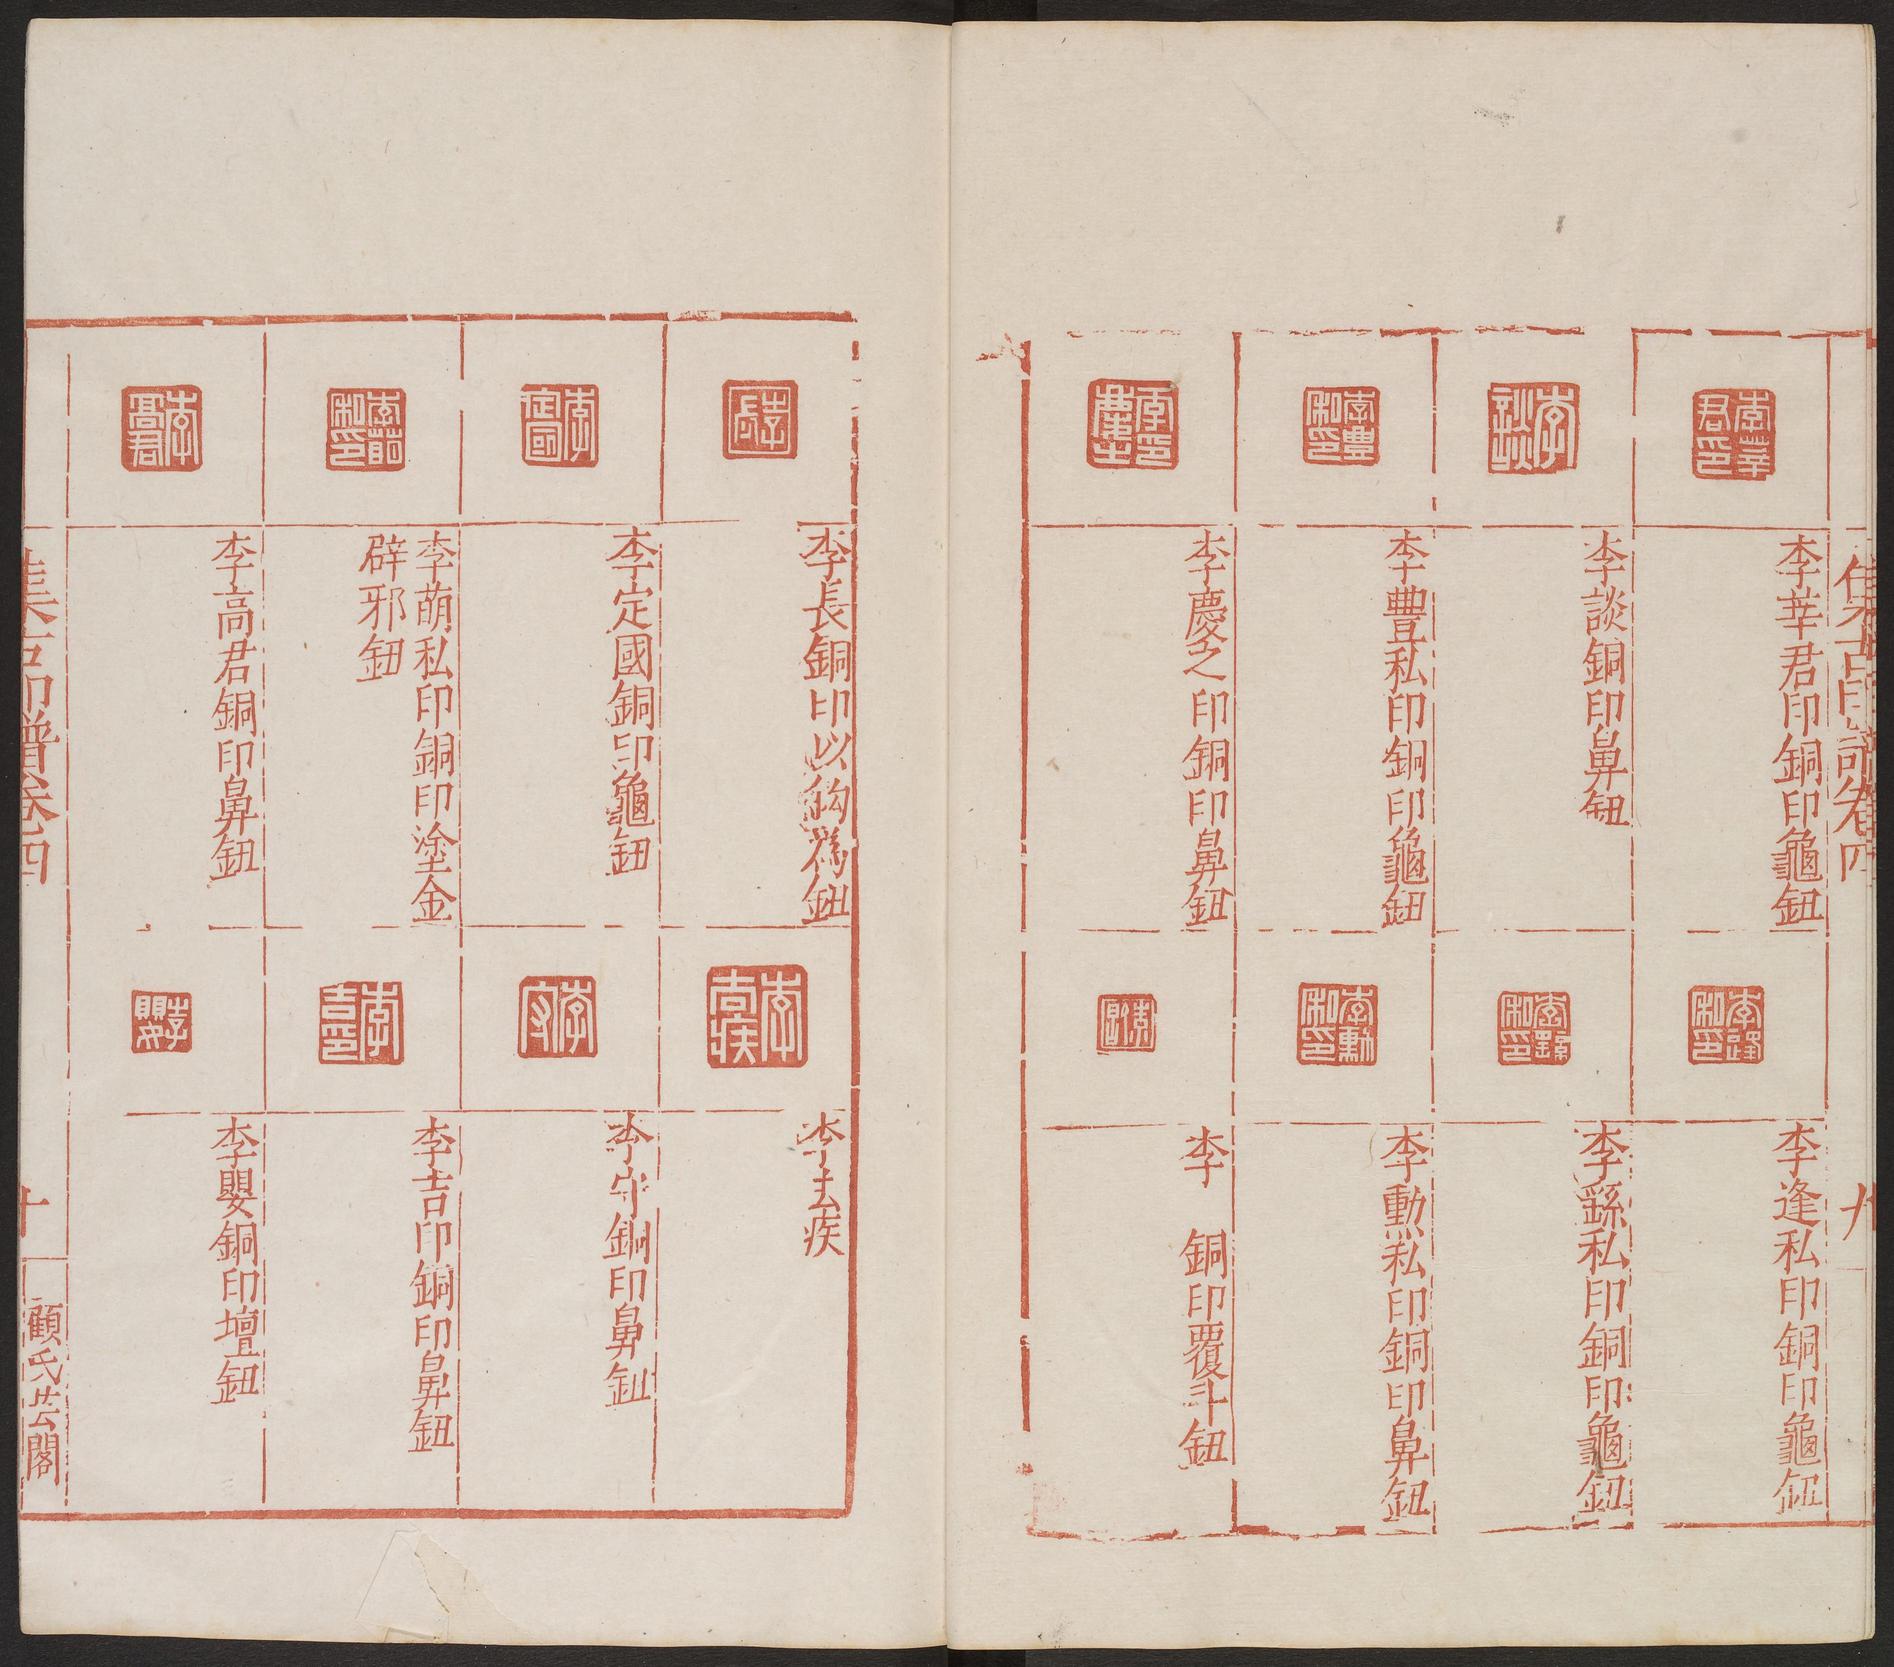 集古印譜卷四
九
李莘君印銅印龜鈕
李談銅印鼻鈕
李豐私印銅印龜鈕
李慶之印銅印鼻鈕
李逢私印銅印龜鈕
李繇私印銅印龜鈕
李勳私印銅印鼻鈕
李 銅印覆斗鈕
李長銅印以鈎為鈕
李定國銅印龜鈕
李萌私印銅印塗金
辟邪鈕
李高君銅印鼻鈕
李去疾
李守銅印鼻鈕
李吉印銅印鼻鈕
李嬰銅印壇鈕
集古印譜卷四
十
顧氏芸閣